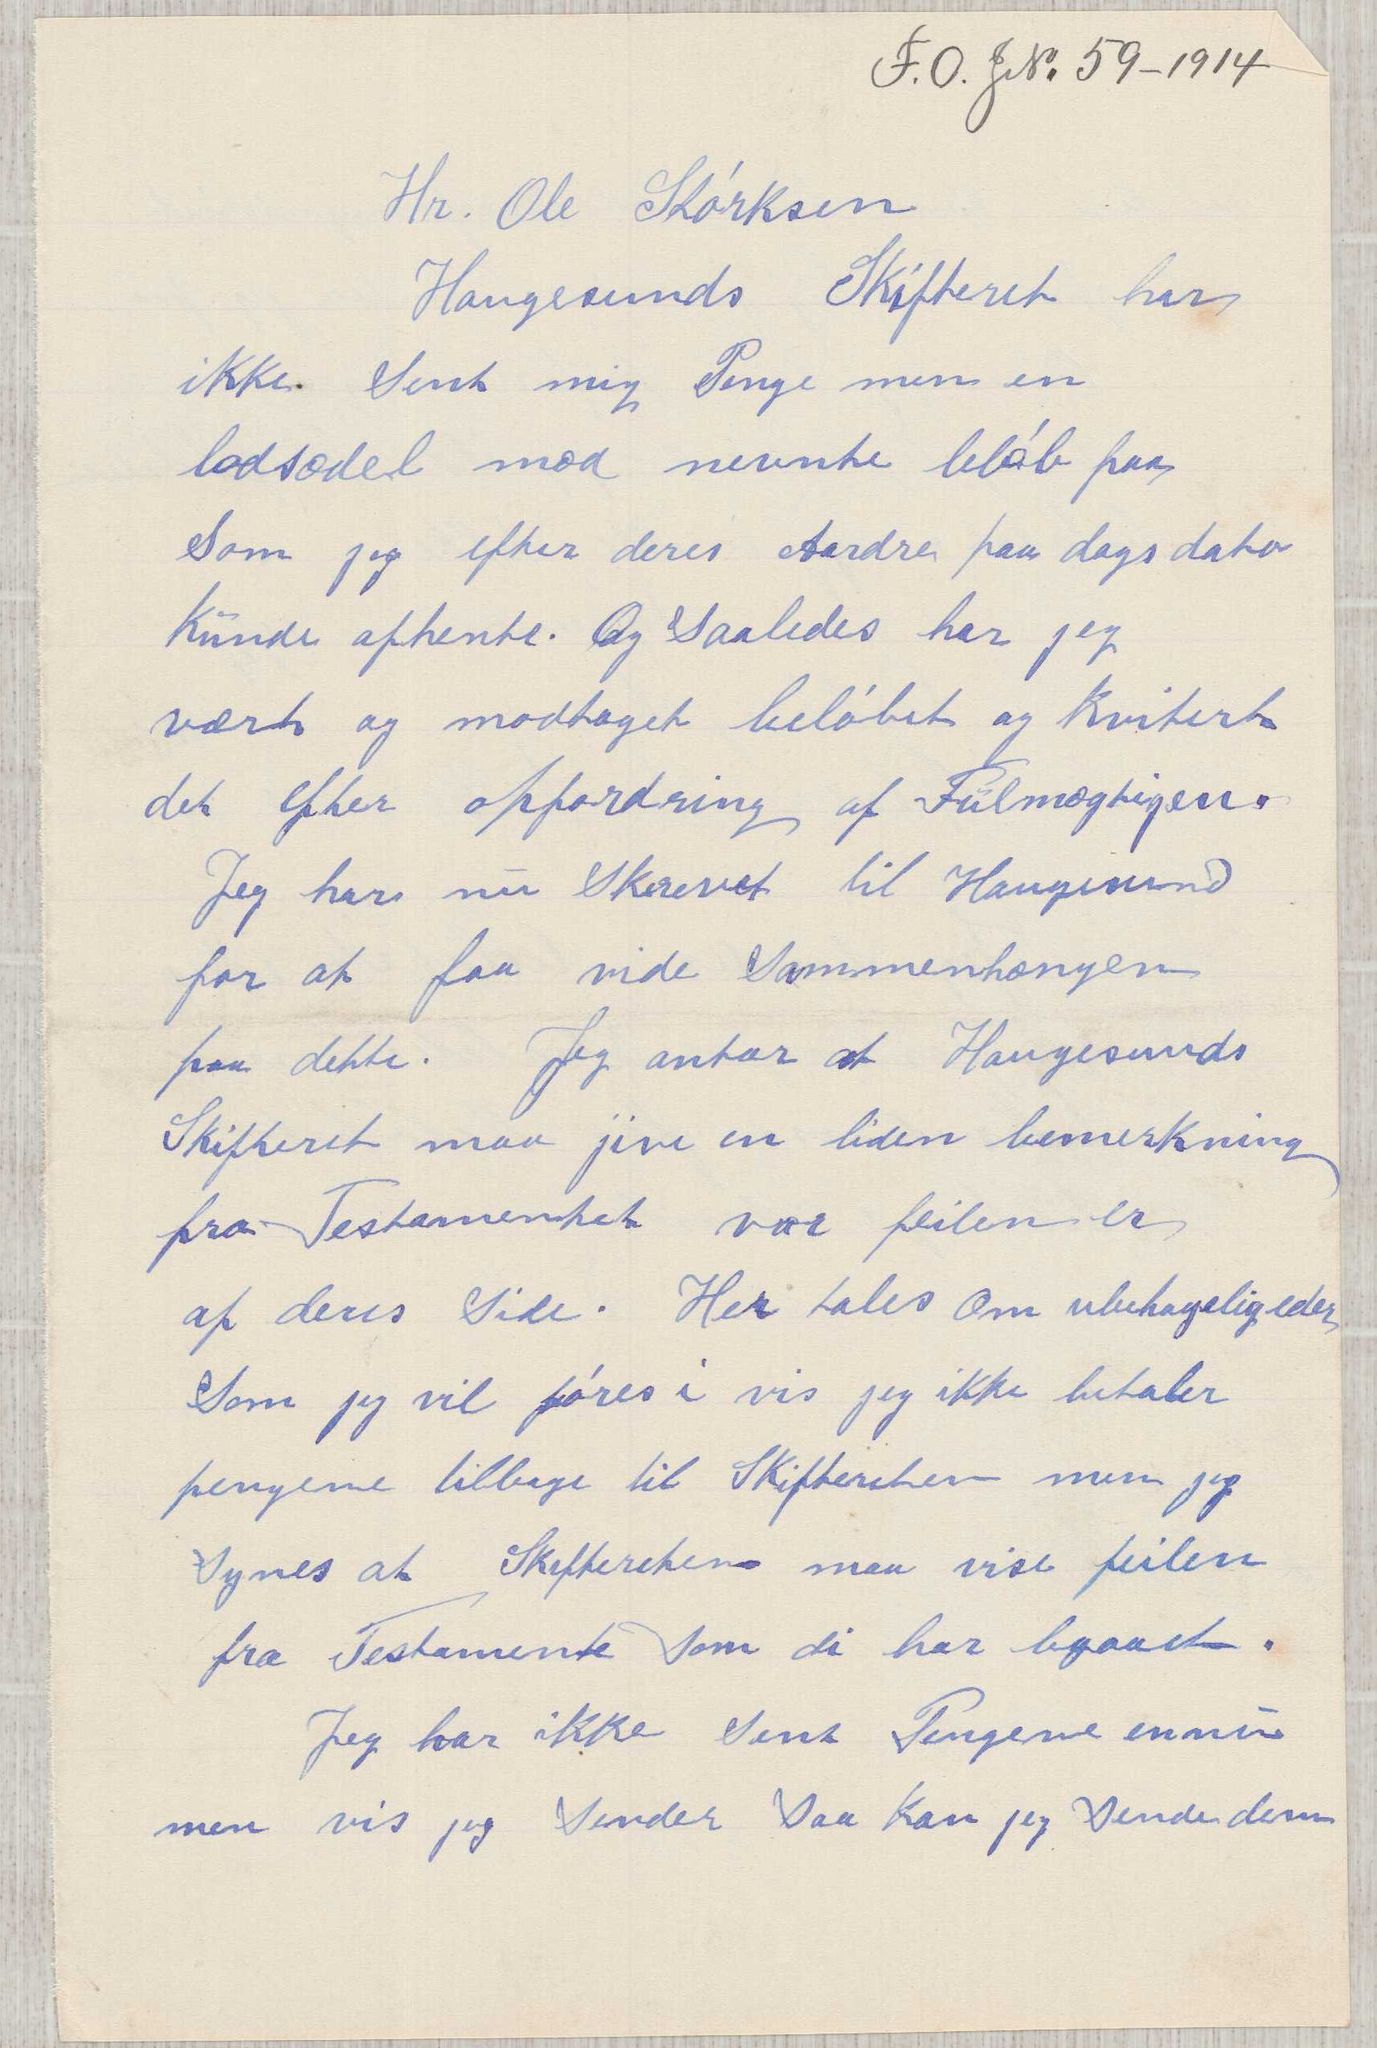 F.O. J.No. 59-1914
Hr. Ole Stórksen
Haugesunds Skifteret har
ikke Sent mig Penge men en
lodsedel med nevnte belób paa
Som jeg efter deres Aardre paa dags dato
Kunde afhente. Og Saaledes har jeg
vært og modtaget belóbet og Kvitert
det efter opfordring af Fúlmægtigen.
Jeg har nu Skrevet til Haugesund
for at faa vide Sammenhængen
paa dette. Jeg antar at Haugesunds
Skifteret maa jive en liden bemerkning
fra Testamentet vor feilen er
af deres Side. Her tales Om ubehageligeder
Som jeg vil fóres i vis jeg ikke betaler
pengene tilbage til Skifteretten men jeg
Synes at Skifteretten maa vise feilen
fra Testamente Som di har begaaet.
Jeg har ikke Sent Pengene ennu
men vis jeg Sender Saa Kan jeg Sende dem